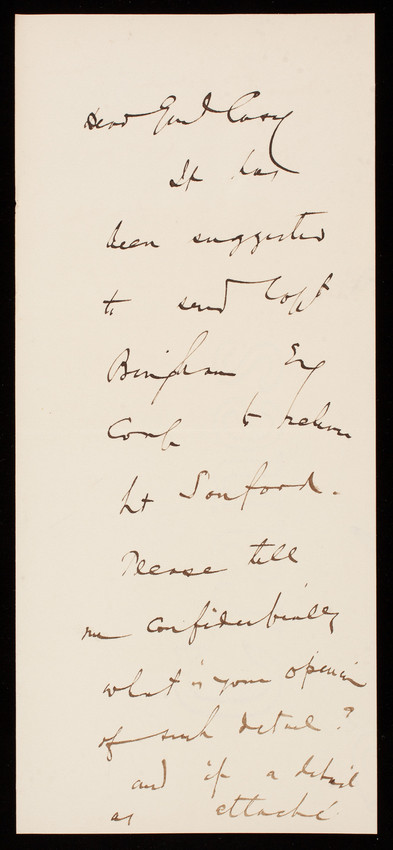 Dear Genl Casey
It has
been suggested
to send Capt
Bingham Eng
Corps to relieve
Lt Sanford.
Please tell
me confidentially
what is your opinion
of such detail?
and if a detail
as attaché